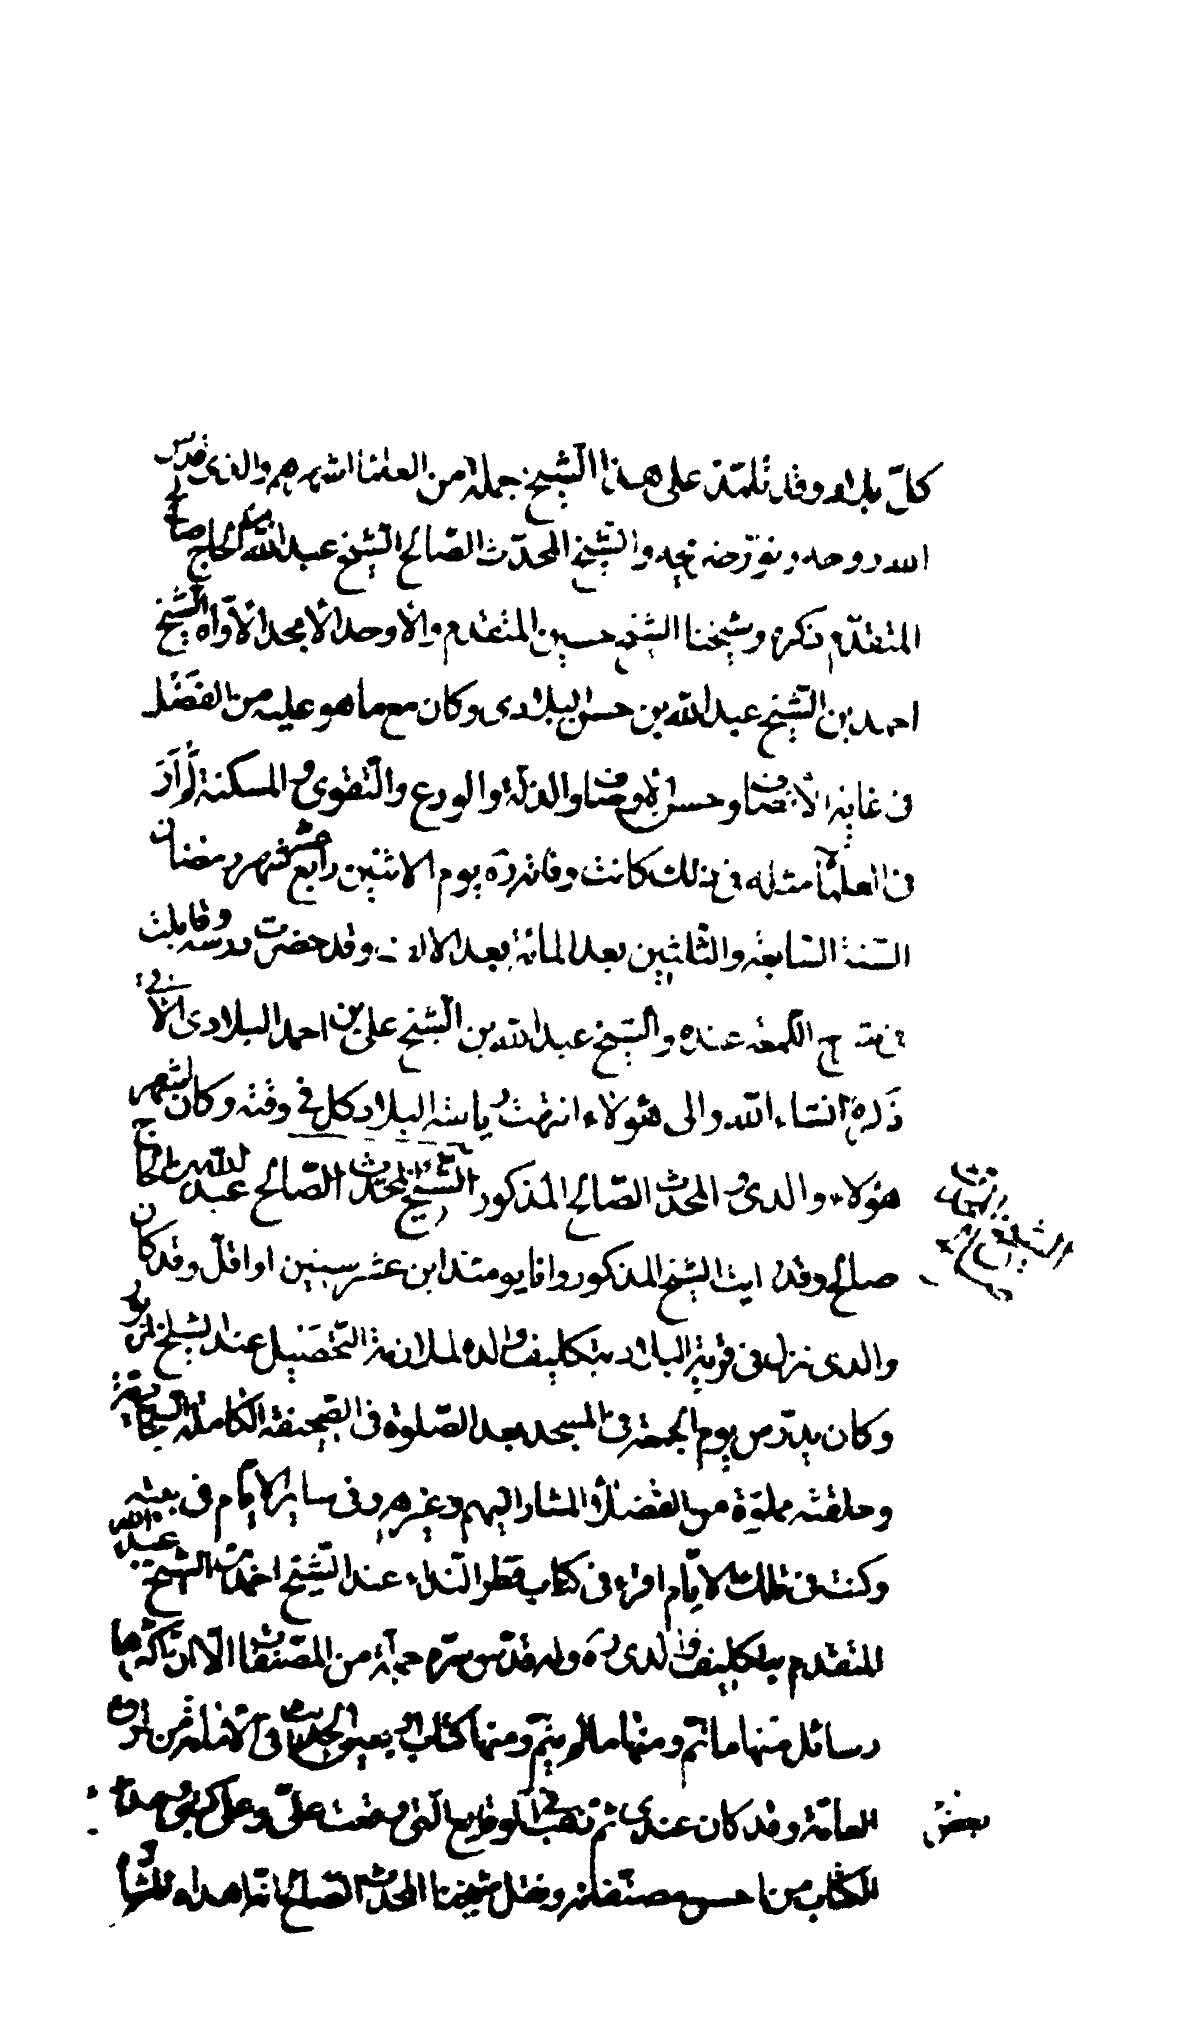 كلّ بلاد وقد تلمّذ على هذا الشيخ جملة من العلماء اشهرهم والدى قدس
الله روحه ونور ضريحه والشيخ المحدّث الصّالح الشيخ عبد الله الحاج صالح
المتقدّم ذكره وشيخنا الشيخ حسين المتقدم والاوحد الامجد الاوّاه الشيخ
احمد بن الشيخ عبد الله بن حسن البلادى وكان مع ما هو عليه من الفضل
فى غاية الانصاف وحسن الاوصاف والذلة والورع والتّقوى والمسكنة لم ار
فى العلماء مثله فى ذلك كانت وفاته ره يوم الاثنين رابع عشر شهر رمضان
السّنة السّابعة والثّلثين بعد المائة بعد الالف وقد حضرت درسه وقابلت
عنده والشيخ عبد الله بن الشيخ على بن احمد البلادى الآتى
ذكره انشاء الله والى هؤلاء انتهت رياسة البلاد كل فى وقته وكان اشهر
هؤلاء والدى و المحدث الصّالح المذكور الشيخ المحدث الصّالح عبد الله بن الحاج
صالح وقد رايت الشيخ المذكور وانا يومئذ ابن عشر سنين او اقلّ وقد كان
والدى نزل فى قرية البلاد بتكليف والده لملازمة التّحصيل عند الشيخ المزبور
وكان يدّرس يوم الجمعة فى المسجد بعد الصّلوة فى الصّحيفة الكاملة السجادية
وحلقته مملوّة من الفضلاء المشار اليهم وغيرهم وفى سائر الايّام فى بيته
وكنت فى تلك الايّام اقرء فى كتاب قطر النّداء عند الشّيخ احمد بن الشيخ عبد الله
المتقدم بتكليف والدى ره وله قدّس سرّه جملة من المصنّفات الّا ان اكثرها
رسائل منها ما تمّ ومنها ما لم يتمّ ومنها كتاب
العامّة وقد كان عندى ثم ذهب فى الوقايع الّتى وقعت علىّ وعلى كتبى وهذا
الكتاب من احسن مصنّفاته ونقل شيخنا المحدث الصّالح انّه اهداه للشاه
بعض